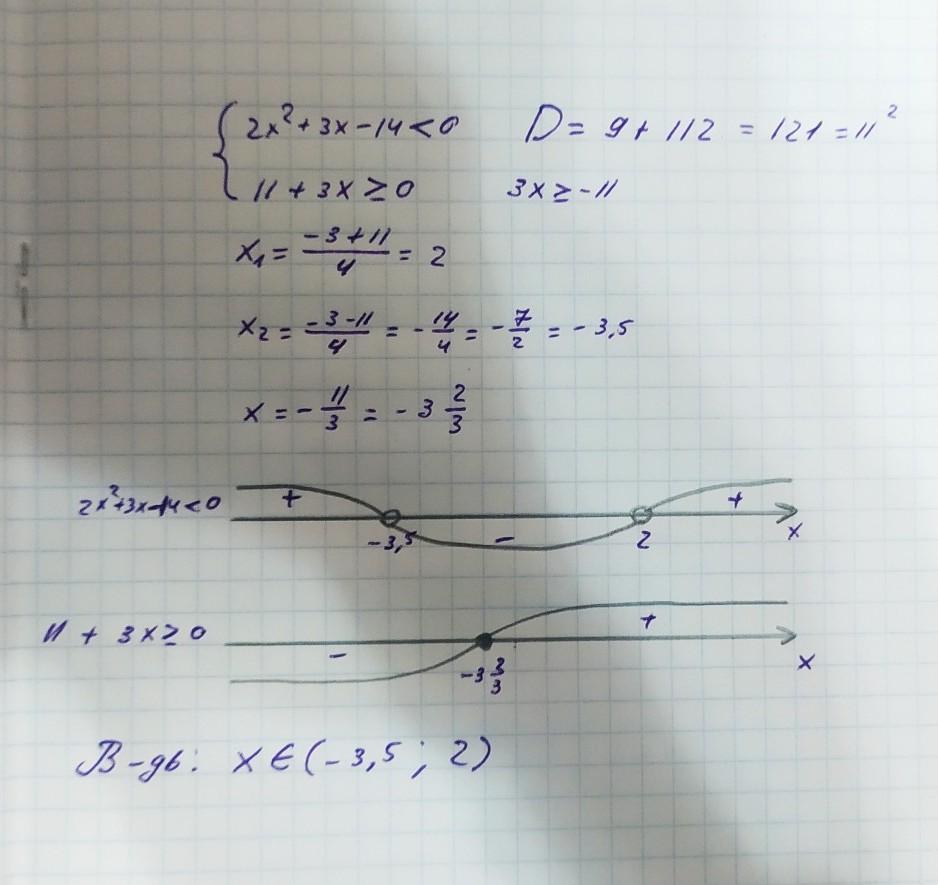 { 2x²+3x-14<0 D = 9 + 112 = 121 = 11²
11 + 3x ≥ 0 3x ≥ -11
x₁ = (-3+11)/4 = 2
x₂ = (-3-11)/4 = -14/4 = -7/2 = -3,5
x = -11/3 = -3 2/3
2x²+3x-14<0 + - + x
-3,5 2
11 + 3x ≥ 0 - + x
-3 2/3
В-дь: x ∈ (-3,5 ; 2)